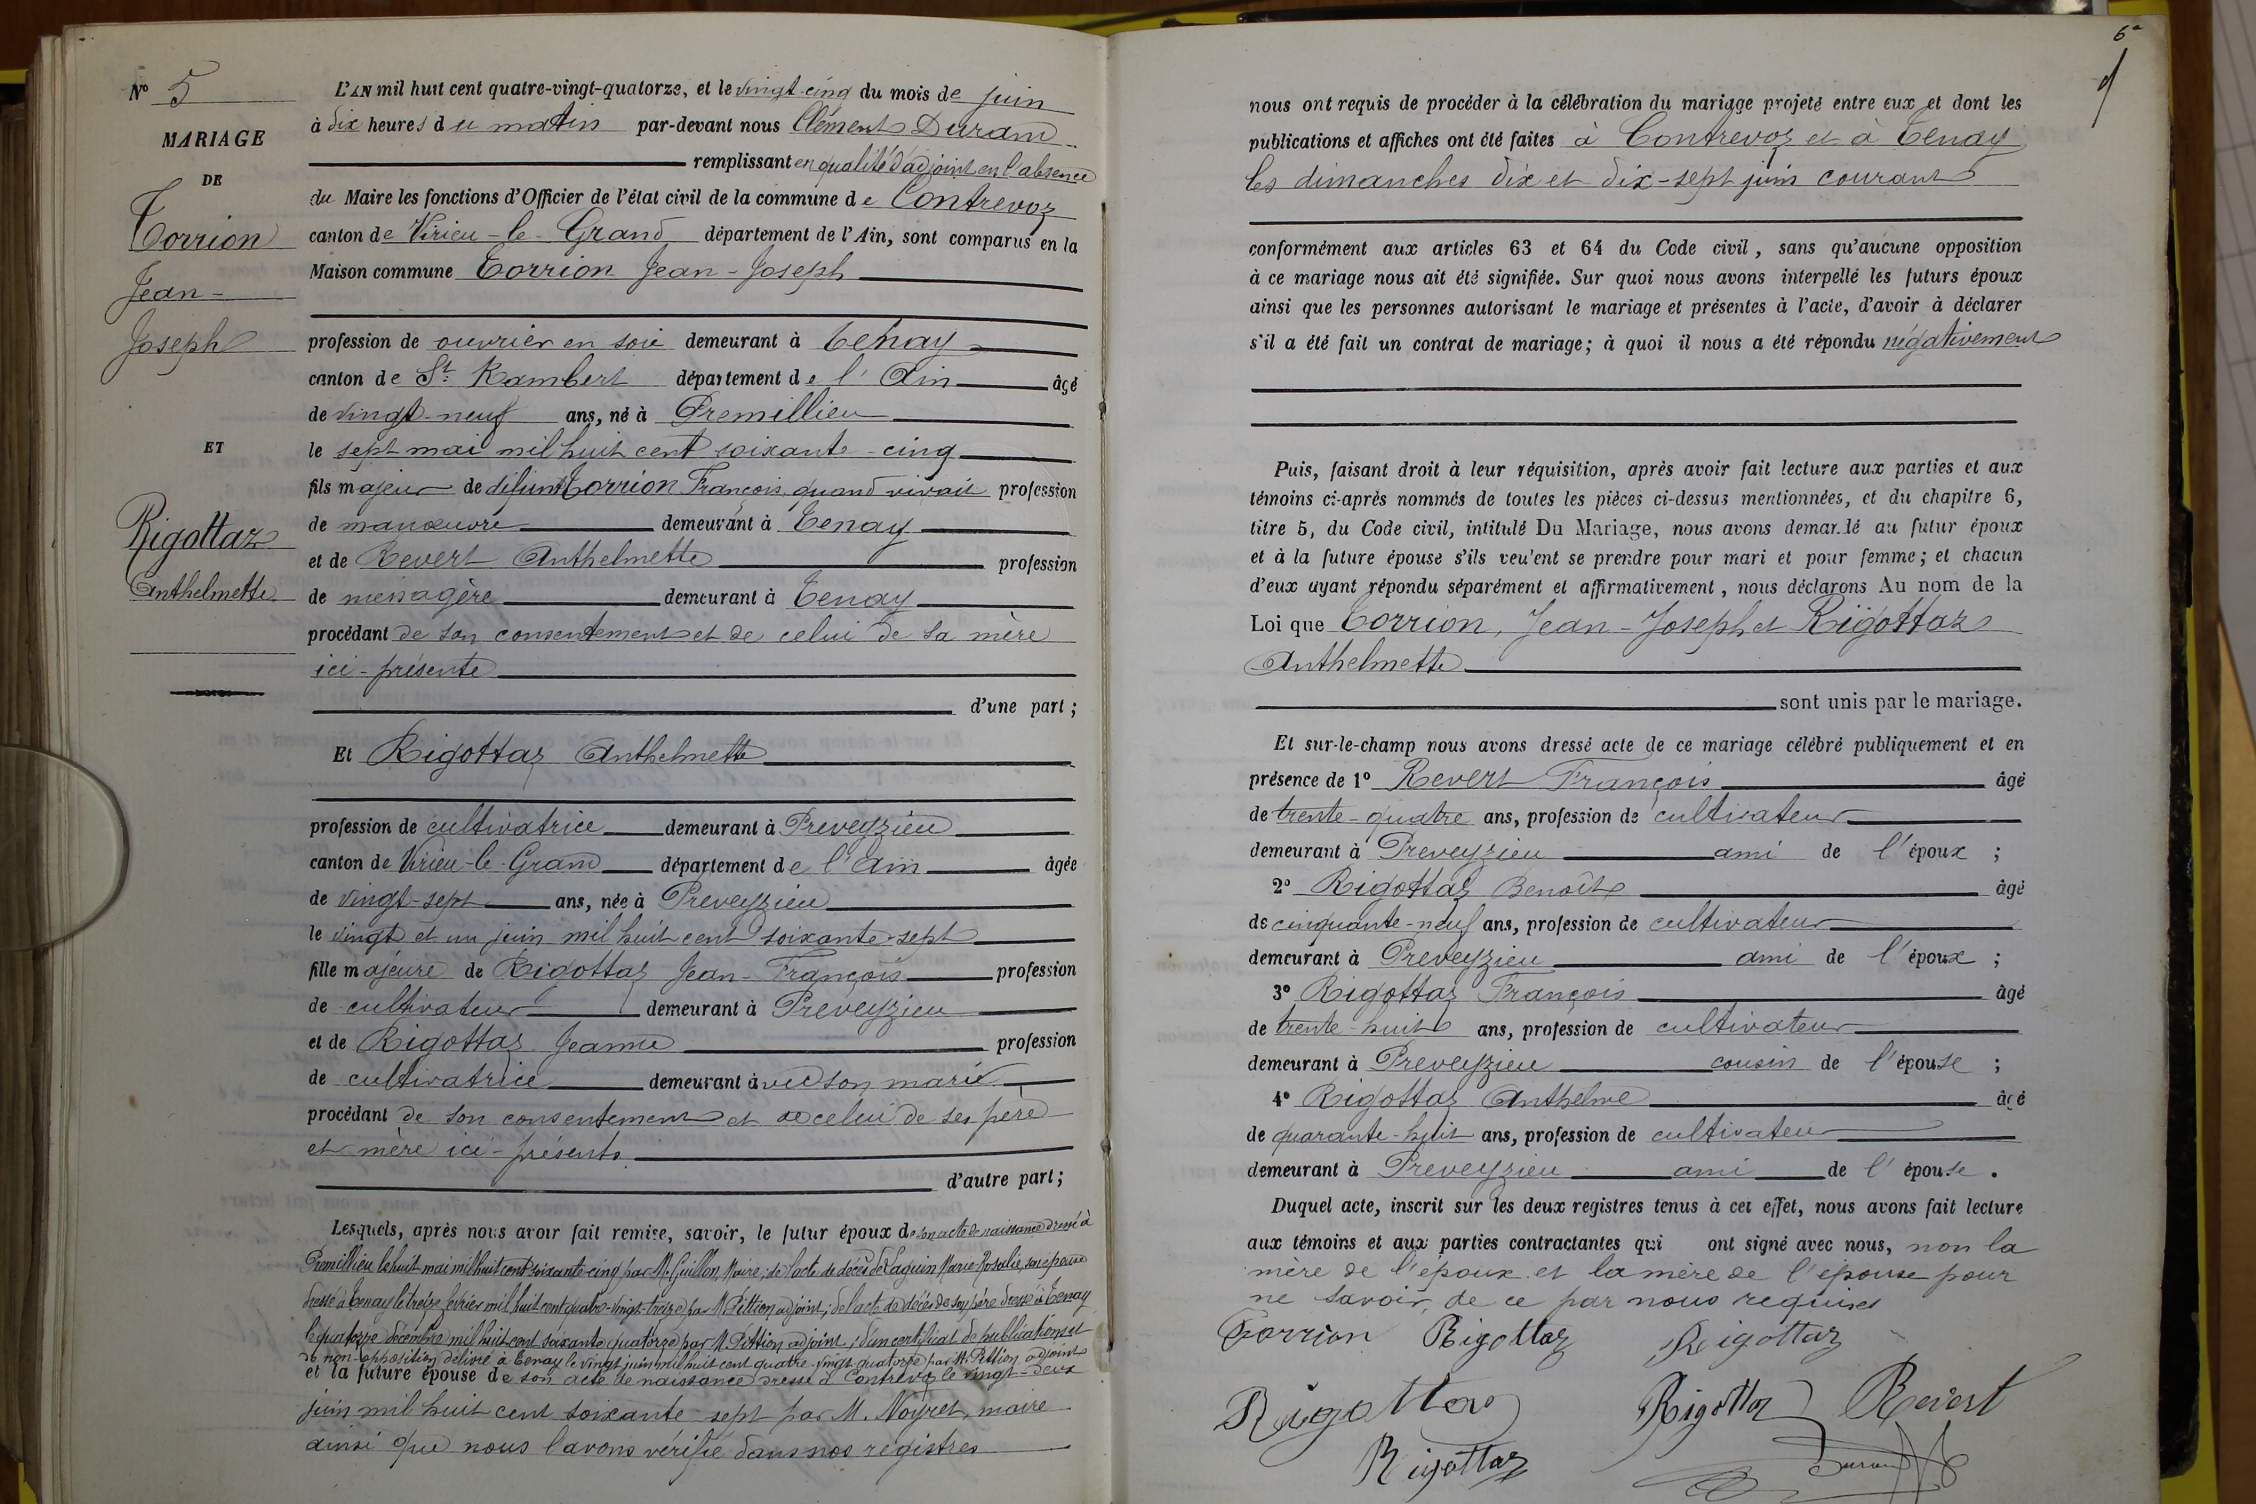 N° 5
MARIAGE
DE
Torrion
Jean-
Joseph
ET
Rigottaz
Anthelmette
L'AN mil huit cent quatre-vingt-quatorze, et le vingt-cinq du mois de juin
à dix heures du matin par-devant nous Clément Durand
remplissant en qualité d'adjoint en l'absence
du Maire les fonctions d'Officier de l'état civil de la commune de Contrevoz
canton de Virieu-le-Grand département de l'Ain, sont comparus en la
Maison commune Torrion Jean-Joseph
profession de ouvrier en soie demeurant à Tenay
canton de St. Rambert département de l'Ain âgé
de vingt-neuf ans, né à Premillieu
le sept mai mil huit cent soixante-cinq
fils majeur de défunt Torrion François, quand vivait profession
de manœuvre demeurant à Tenay
et de Revert Anthelmette profession
de ménagère demeurant à Tenay
procédant de son consentement et de celui de sa mère
ici-présente
d'une part;
Et Rigottaz Anthelmette
profession de cultivatrice demeurant à Preveyzieu
canton de Virieu-le-Grand département de l'Ain âgée
de vingt-sept ans, née à Preveyzieu
le vingt et un juin mil huit cent soixante-sept
fille majeure de Rigottaz Jean-François profession
de cultivateur demeurant à Preveyzieu
et de Rigottaz Jeanne profession
de cultivatrice demeurant avec son mari
procédant de son consentement et de celui de ses père
et mère ici-présents
d'autre part;
Lesquels, après nous avoir fait remise, savoir, le futur époux de son acte de naissance dressé à
Premillieu le huit mai mil huit cent soixante-cinq par M. Guillon, Maire; de l'acte de décès de Laguin Marie Rosalie, son épouse
dressé à Tenay le treize février mil huit cent quatre-vingt-treize par M. Pittion adjoint; de l'acte de décès de son père dressé à Tenay
le quatorze décembre mil huit cent soixante quatorze par M. Pittion adjoint; d'un certificat de publication et
de non-opposition délivré à Tenay le vingt juin mil huit cent quatre-vingt quatorze par M. Pittion adjoint
et la future épouse de son acte de naissance dressé à Contrevoz le vingt-deux
juin mil huit cent soixante-sept par M. Noyret, maire
ainsi que nous l'avons vérifié dans nos registres
6e
nous ont requis de procéder à la célébration du mariage projeté entre eux et dont les
publications et affiches ont été faites à Contrevoz et à Tenay
les dimanches dix et dix-sept juin courant
conformément aux articles 63 et 64 du Code civil, sans qu'aucune opposition
à ce mariage nous ait été signifiée. Sur quoi nous avons interpellé les futurs époux
ainsi que les personnes autorisant le mariage et présentes à l'acte, d'avoir à déclarer
s'il a été fait un contrat de mariage; à quoi il nous a été répondu négativement
Puis, faisant droit à leur réquisition, après avoir fait lecture aux parties et aux
témoins ci-après nommés de toutes les pièces ci-dessus mentionnées, et du chapitre 6,
titre 5, du Code civil, intitulé Du Mariage, nous avons demandé au futur époux
et à la future épouse s'ils veulent se prendre pour mari et pour femme; et chacun
d'eux ayant répondu séparément et affirmativement, nous déclarons Au nom de la
Loi que Torrion, Jean-Joseph et Rigottaz
Anthelmette
sont unis par le mariage.
Et sur-le-champ nous avons dressé acte de ce mariage célébré publiquement et en
présence de 1° Revert François âgé
de trente-quatre ans, profession de cultivateur
demeurant à Preveyzieu ami de l'époux;
2° Rigottaz Benoît âgé
de cinquante-neuf ans, profession de cultivateur
demeurant à Preveyzieu ami de l'époux;
3° Rigottaz François âgé
de trente-huit ans, profession de cultivateur
demeurant à Preveyzieu cousin de l'épouse;
4° Rigottaz Anthelme âgé
de quarante-huit ans, profession de cultivateur
demeurant à Preveyzieu ami de l'épouse.
Duquel acte, inscrit sur les deux registres tenus à cet effet, nous avons fait lecture
aux témoins et aux parties contractantes qui ont signé avec nous, non la
mère de l'époux et la mère de l'épouse pour
ne savoir, de ce par nous requises
Torrion Rigottaz Rigottaz
Rigottaz Rigottaz Revert
Rigottaz Durand